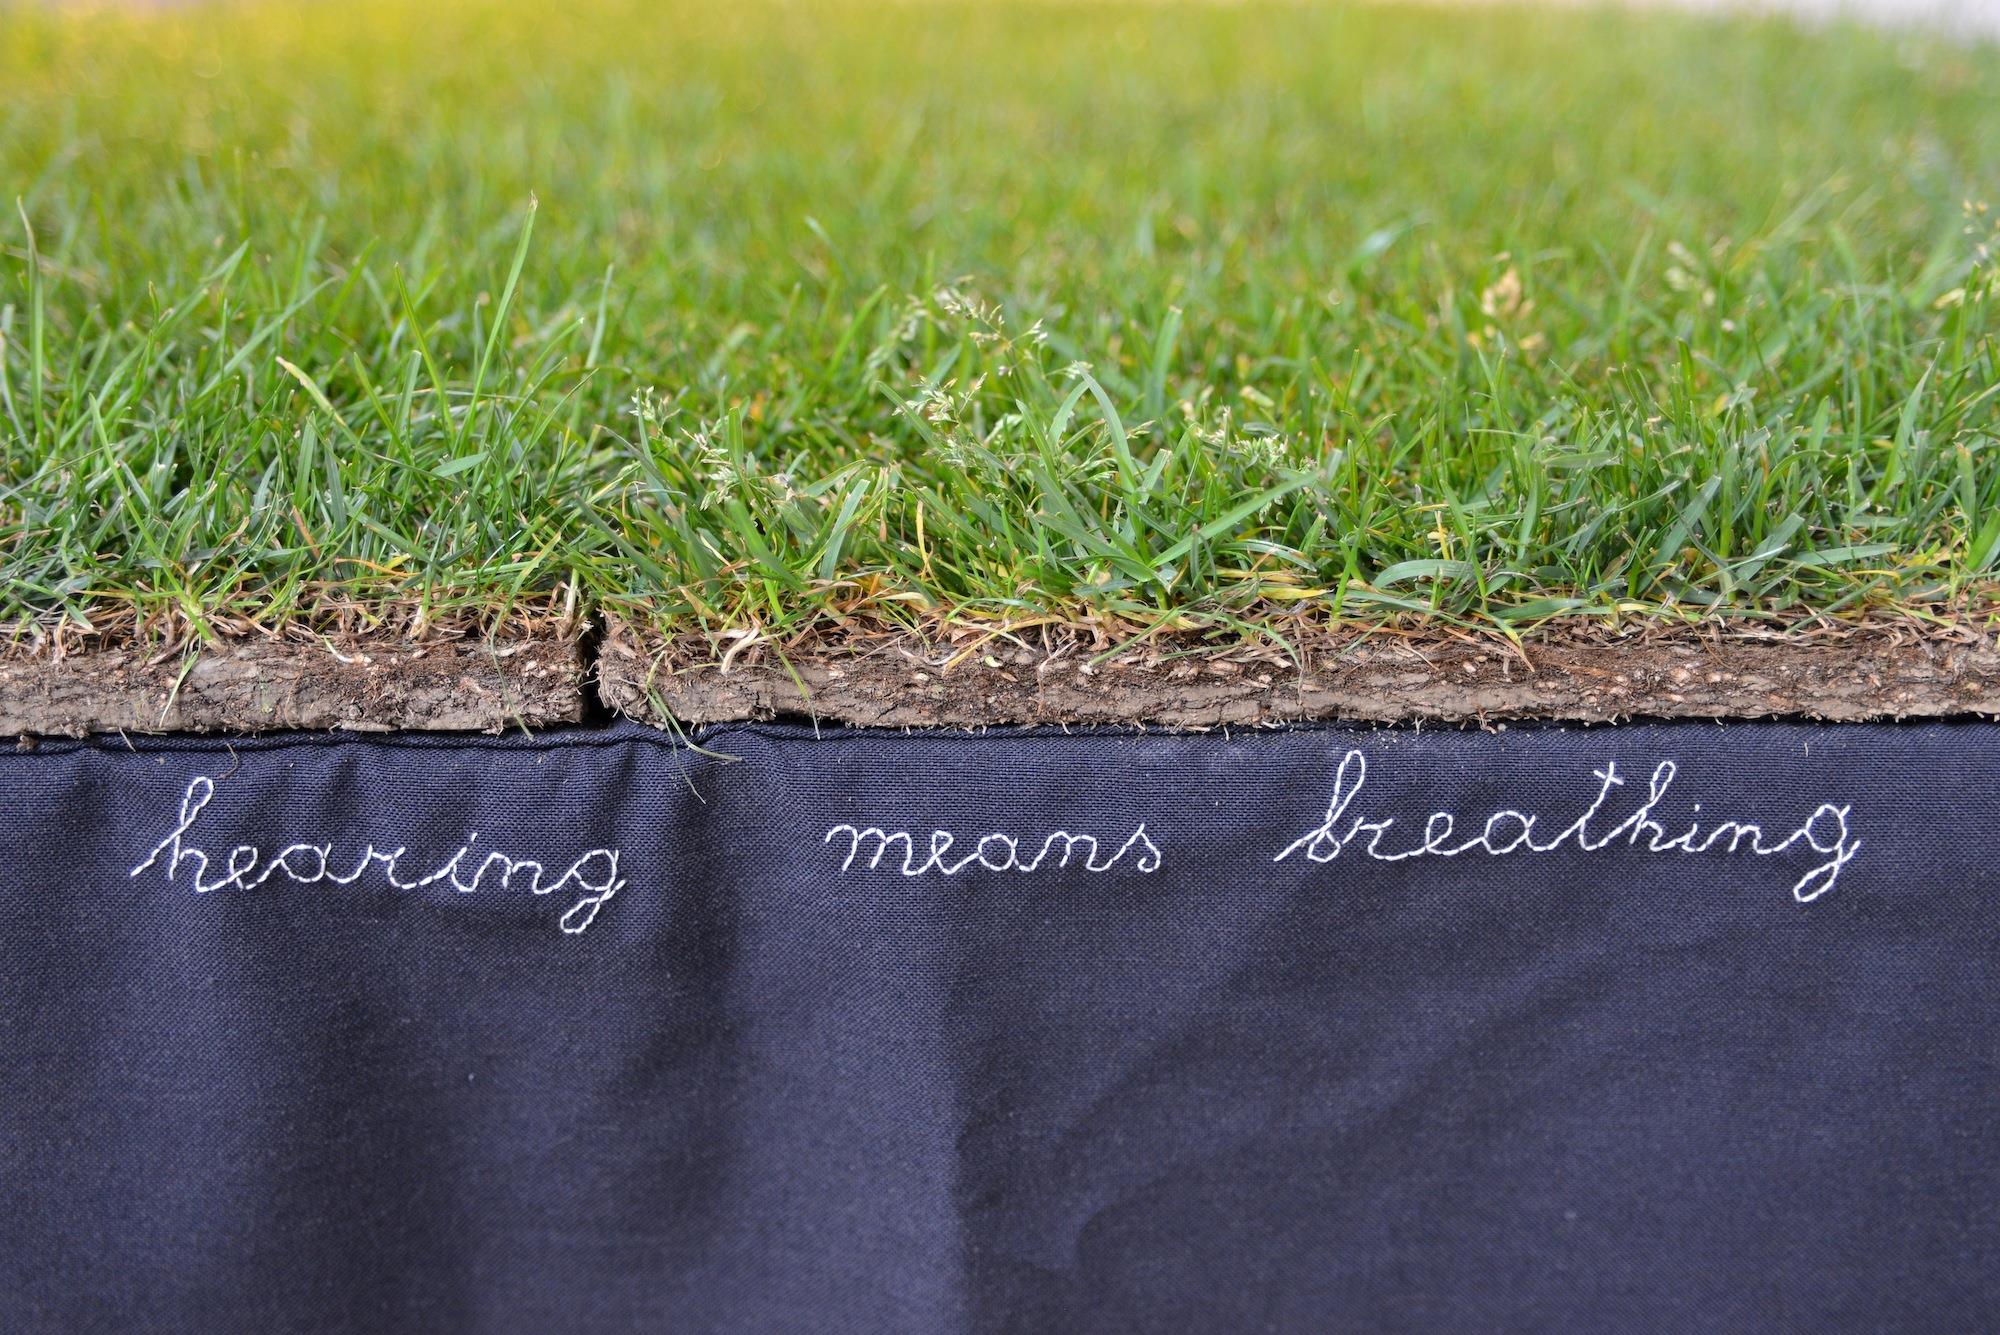 hearing means breathing